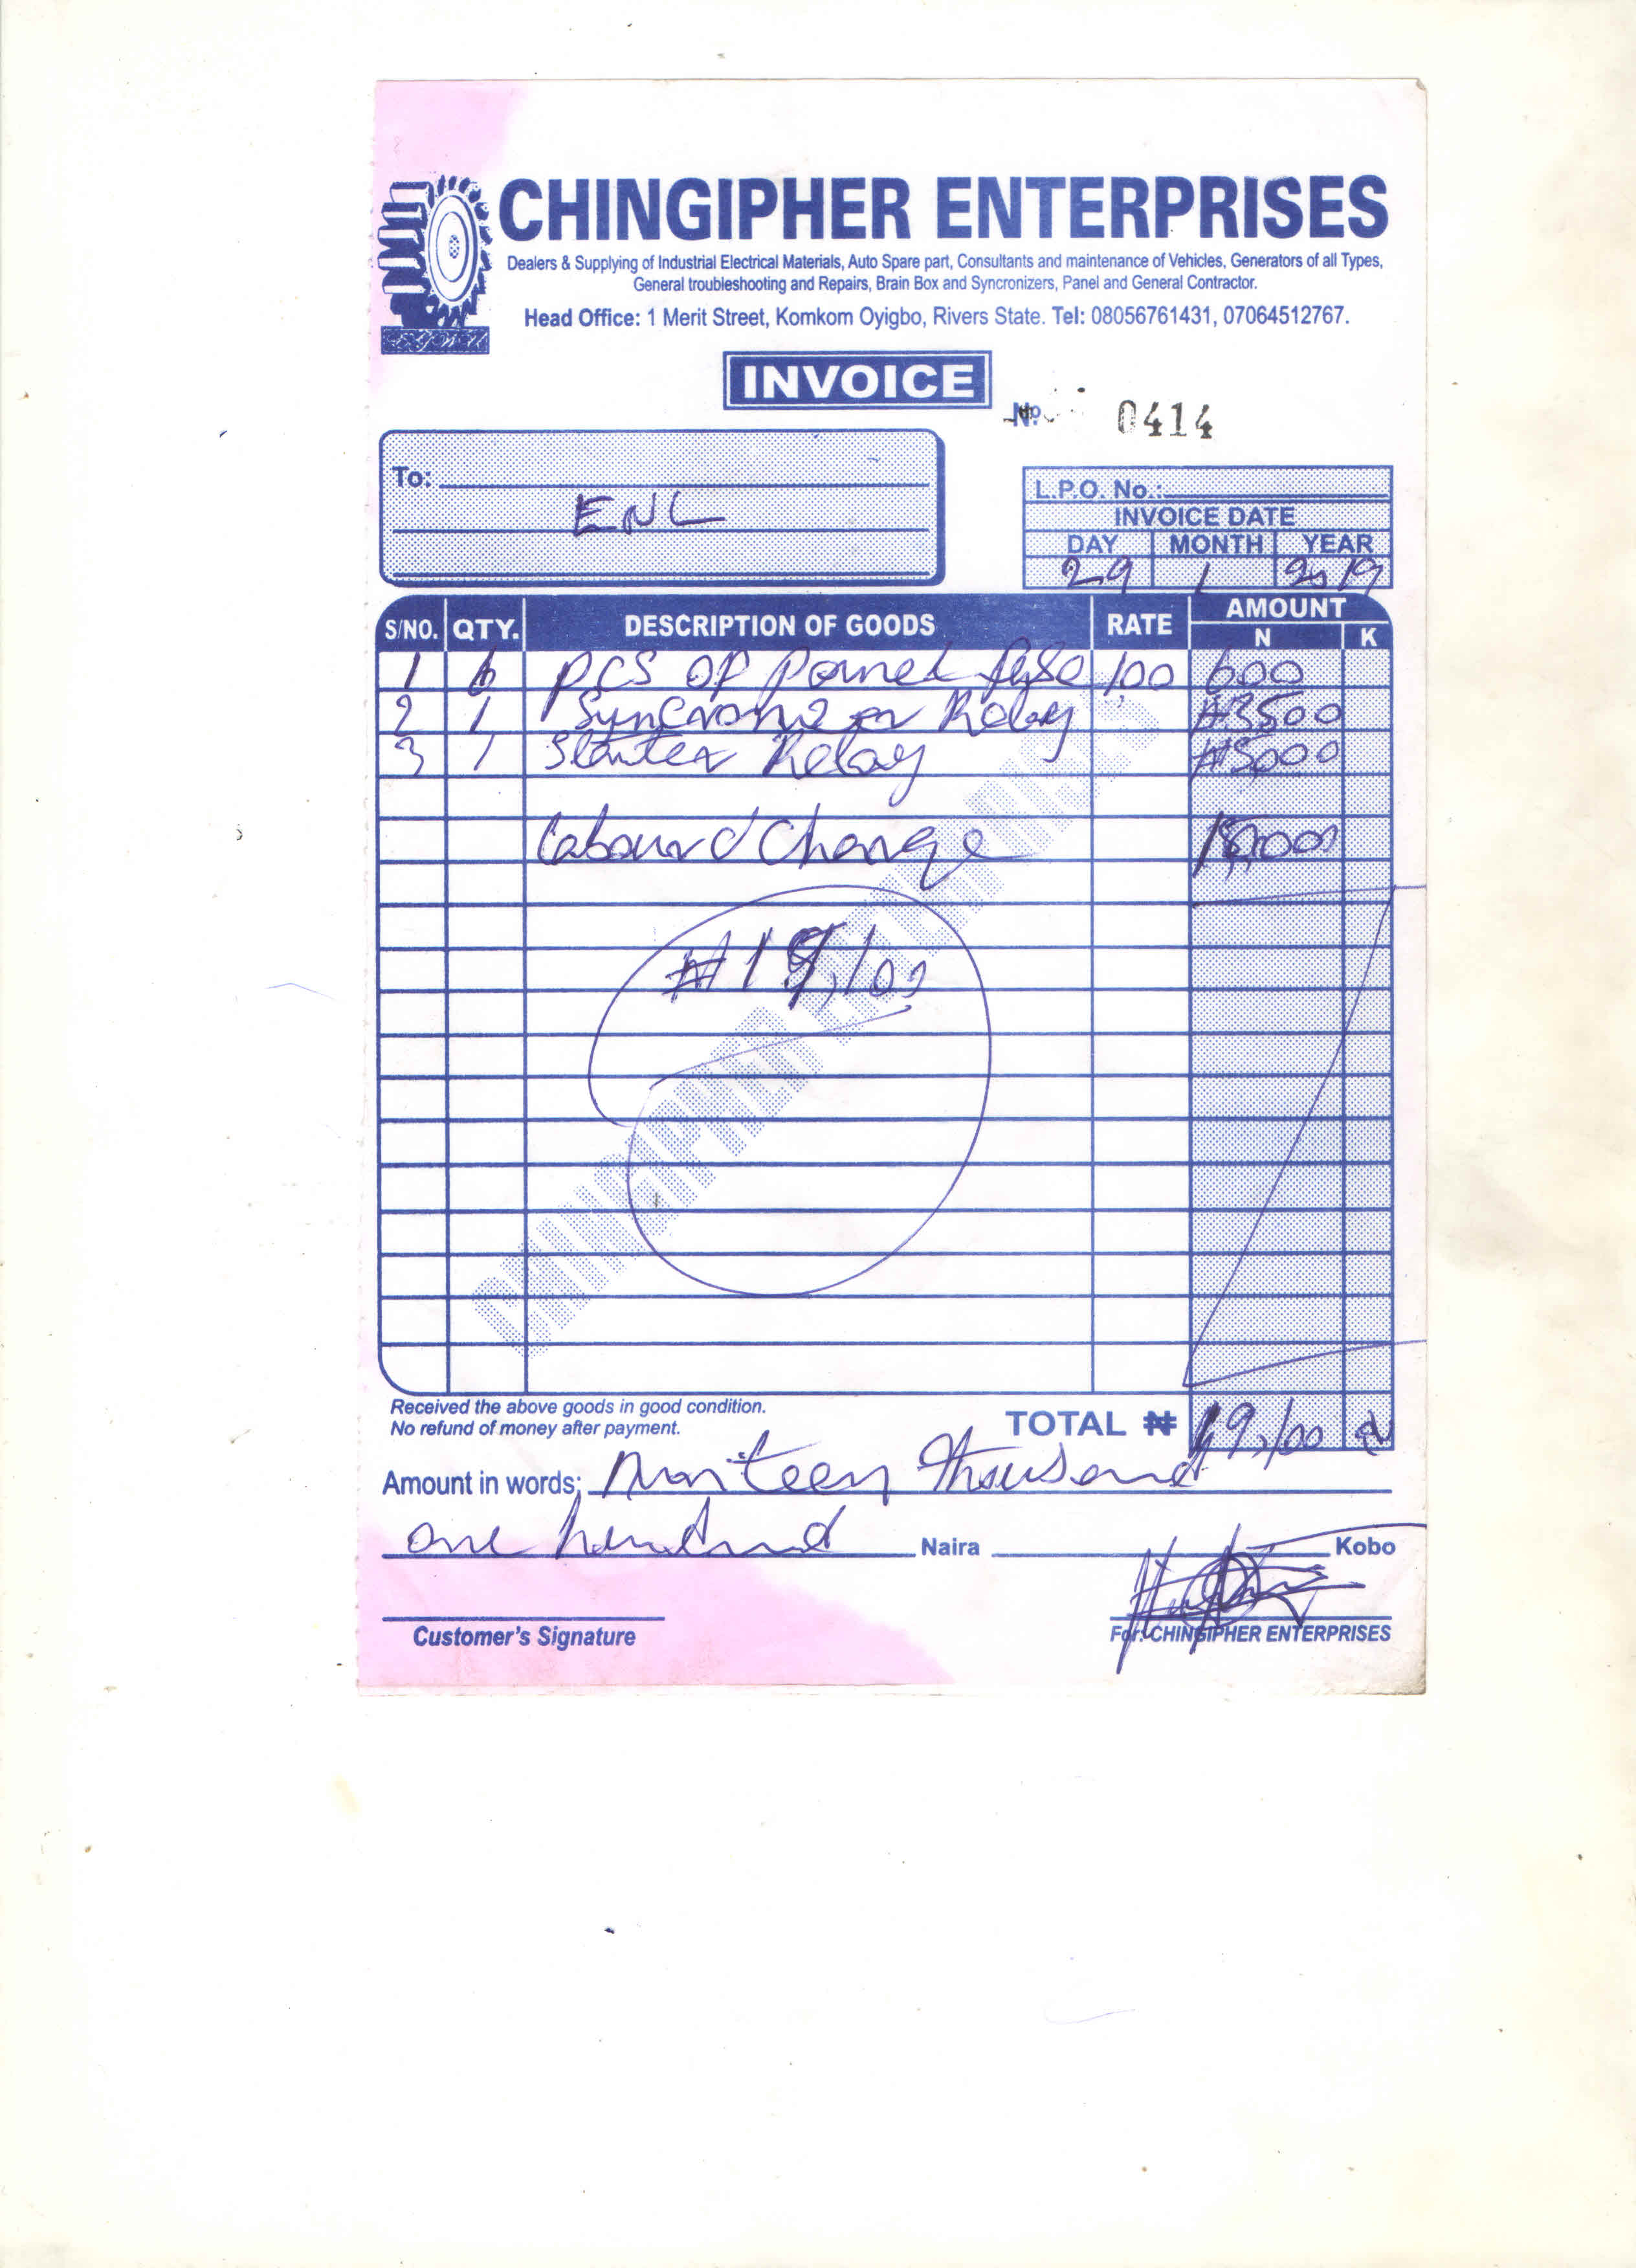 CHINGIPHER ENTERPRISES
Dealers & Supplying of Industrial Electrical Materials, Auto Spare part, Consultants and maintenance of Vehicles, Generators of all Types,
General troubleshooting and Repairs, Brain Box and Syncronizers, Panel and General Contractor.
Head Office: 1 Merit Street, Komkom Oyigbo, Rivers State. Tel: 08056761431, 07064512767.
INVOICE
No. 0414
To:
ENL
L.P.O. No.:
INVOICE DATE
DAY MONTH YEAR
29 1 2019
S/NO. QTY. DESCRIPTION OF GOODS RATE AMOUNT
N K
1 6 PCS OF Panel 100 600
2 1 Relay ₦3500
3 1 Starter Relay
Labour Charge
₦19,100
CHINGIPHER ENTERPRISES
Received the above goods in good condition.
No refund of money after payment.
TOTAL ₦ 19,100
Amount in words: thousand
one Naira Kobo
Customer's Signature
For: CHINGIPHER ENTERPRISES